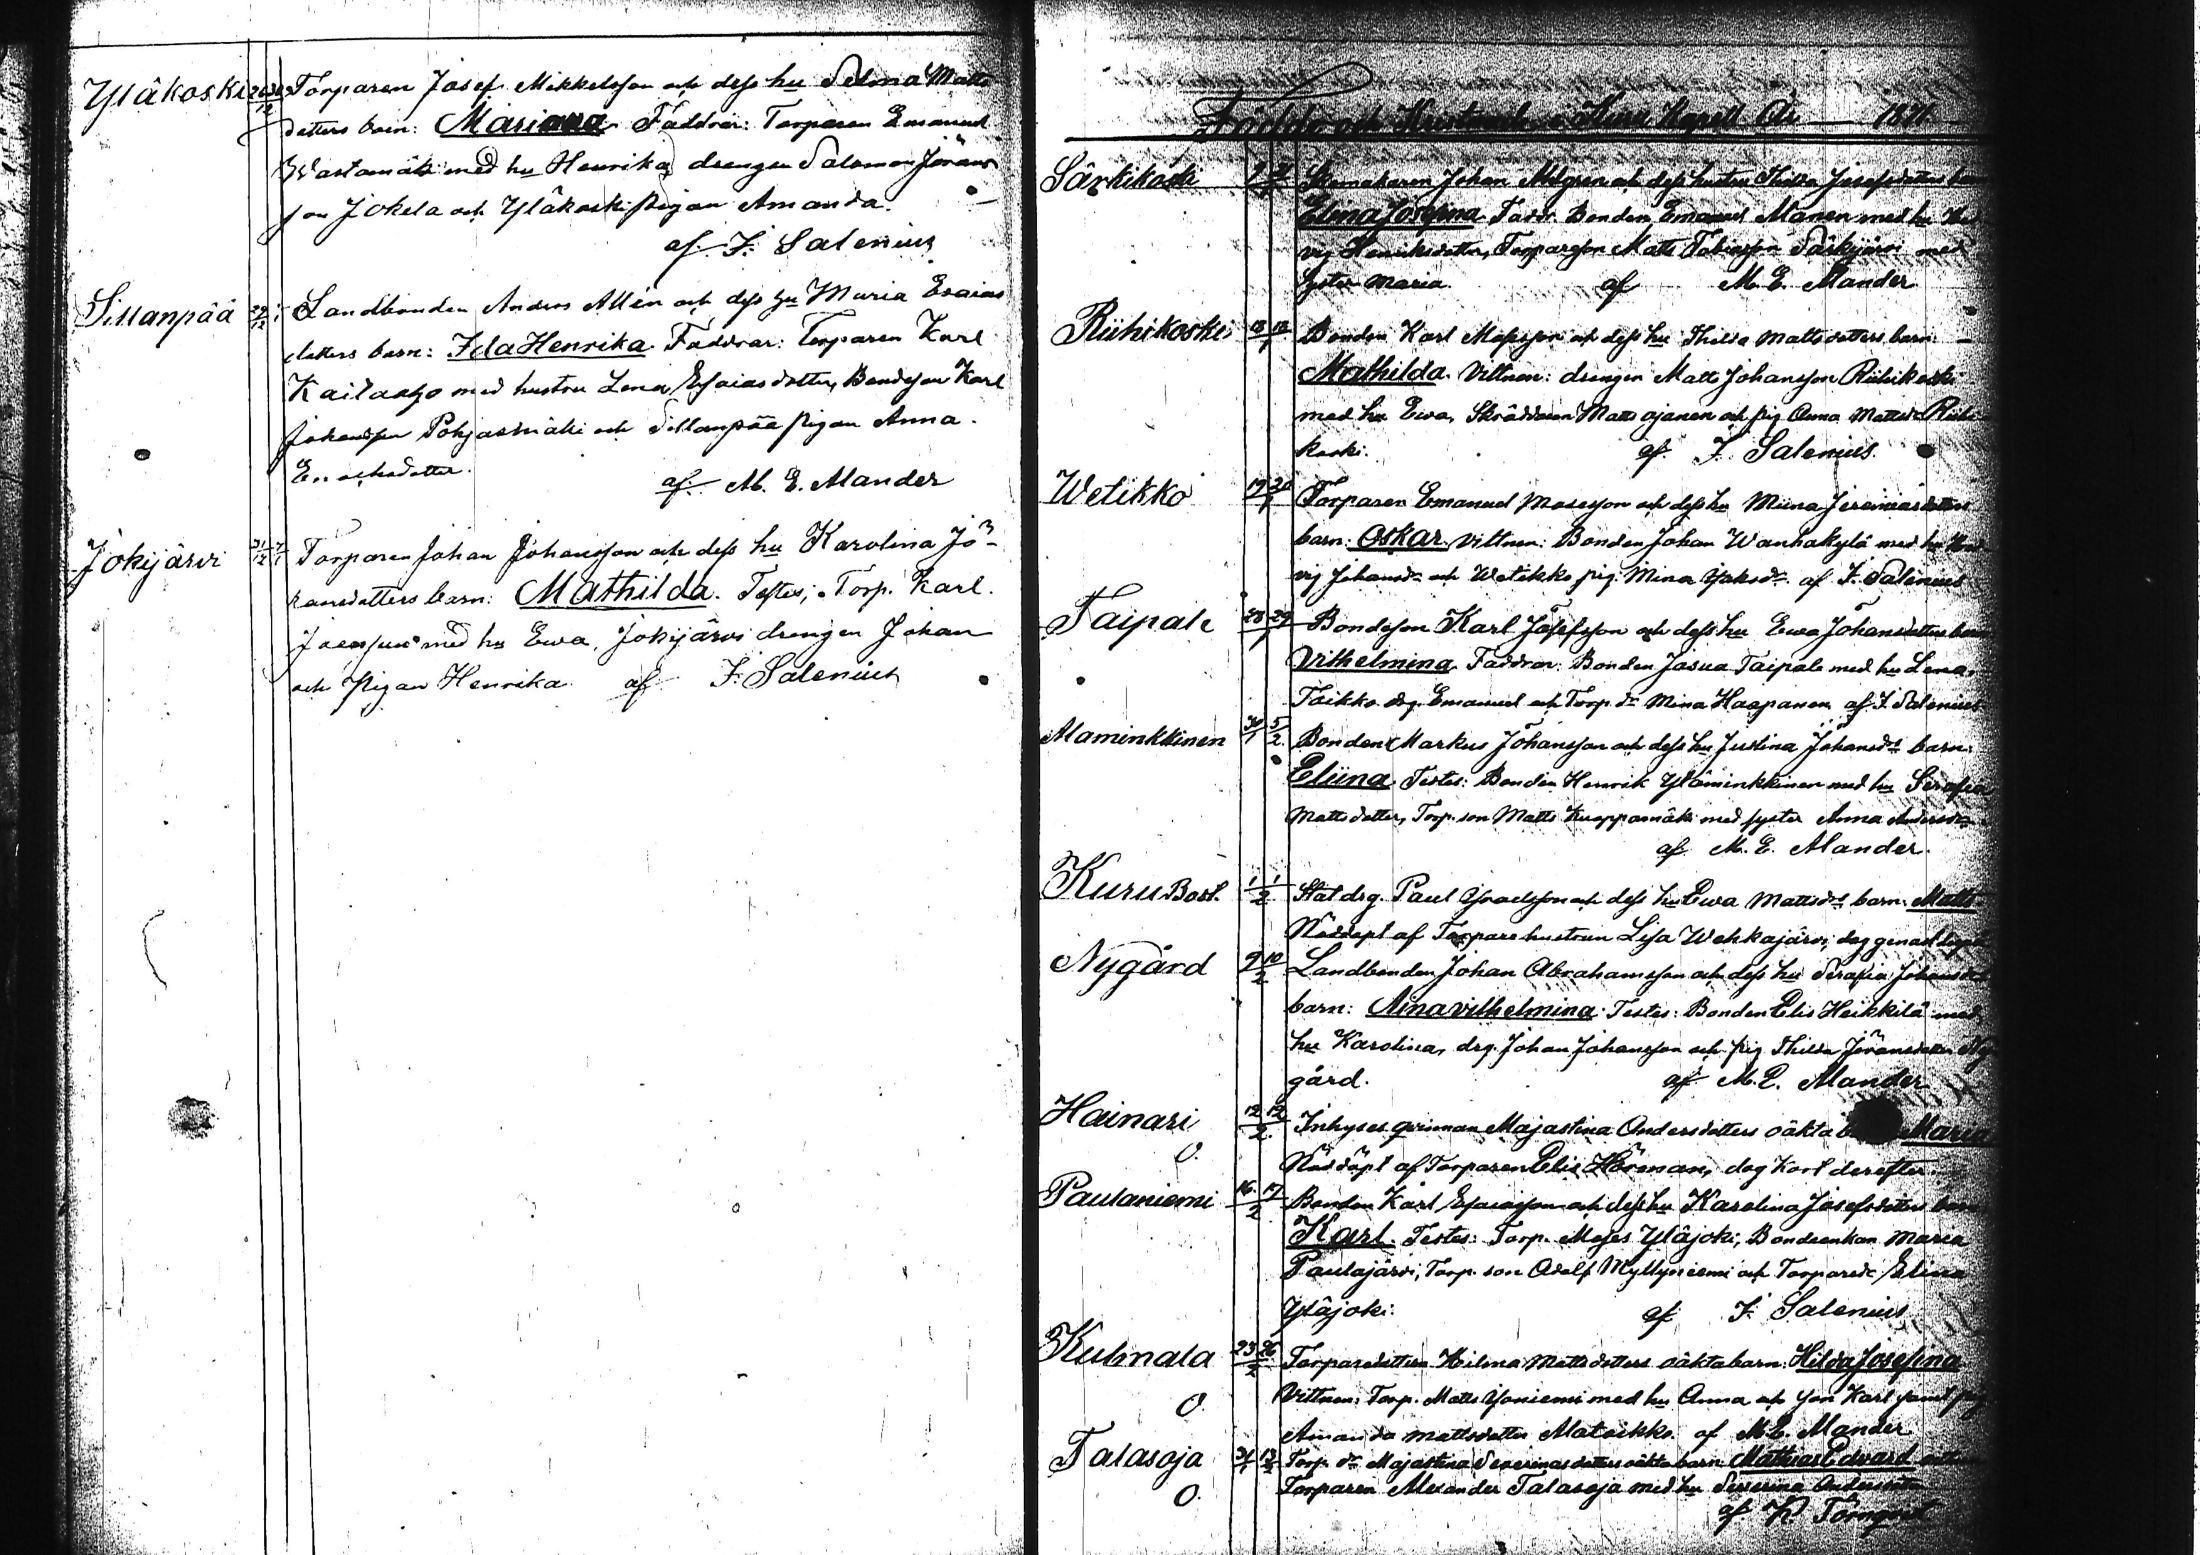 Yläkoski Torparen Josef Mikkelsson och dess hu Selma Matts
dotters barn: Mariana Faddrar: Torparen Emanuel
Wastamäki med hu Henrika, drengen Salomon Jörans
son Jokela och Yläkoski pigan Amanda.
af F. Salenius
Sillanpää 29/12 Landbonden Anders Allén och dess hu Maria Esaias
dotters barn: Ida Henrika Faddrar: Torparen Karl
Kailasto med hustru Lena Esaiasdotter, Bondeson Karl
Johansson Pohjasmäki och Sillanpää pigan Anna
Enochsdotter. af M. E. Mander
Jokijärvi 31/12 7/1 Torparen Johan Johansson och dess hu Karolina Jö-
ransdotters barn: Mathilda. Testes; Torp. Karl
med hu Ewa, Jokijärvi drengen Johan
och Pigan Henrika af F. Salenius
Födde och Kristnade i Kuru Kapell År 1871
Särkikoski Skomakaren Johan och dess hustru Thilda Josefsdotters
Elina Josefina Faddr. Bonden Emanuel Manen med hu
vig Henriksdotter, Torparson Matts Tobiasson Särkijärvi med
Syster Maria af M. E. Mander
Riihikoski Bonden Karl Mosesson och dess hu Thilda Mattsdotters barn:
Mathilda. Vittnen: drengen Matts Johansson Riihikoski
med hu Ewa, Skräddaren Matts Ojanen och pig. Anna Mattsdr Riihi
koski. af F. Salenius.
Wetikko 19 20/1 Torparen Emanuel Mosesson och dess hu Miina Jeremiasdotters
barn: Oskar. Vittnen: Bonden Johan Wanhakylä med hu Hed
vig Johansdr och Wetikko pig. Mina af F. Salenius
Taipale 28 29/1 Bondeson Karl Josefsson och dess hu Ewa Johansdotters barn
Vilhelmina. Faddrar: Bonden Josua Taipale med hu Lena,
Taikko drg. Emanuel och Torp. dr Mina Haapanen af F. Salenius
Alaminkkinen 30/1 5/2 Bonden Markus Johansson och dess hu Justina Johansdr barn:
Eliina. Testes: Bonden Henrik Yläminkkinen med hu Serafia
Mattsdotter, Torp. son Matts Kuoppamäki med syster Anna Andersdr
af M. E. Mander.
Kuru Bost. 1 1/2 Stat drg. Paul och dess hu Ewa Mattsdr barn: Matts
Nöddöpt af Torpare hustrun Lisa Wehkajärvi, dog genast
Nygård 9 10/2 Landbonden Johan Abrahamsson och dess hu Serafia Johansdr
barn: Aina Vilhelmina. Testes: Bonden Elis Heikkilä med
hu Karolina, drg. Johan Johansson och pig. Thilda Jöransdotter Ny
gård. af M. E. Mander
Hainari 12 12/2 Inhyses qvinnan Majastina Andersdotters oäkta b Maria
O. Nöddöpt af Torparen Elis, dog kort derefter.
Paulaniemi 16 17/2 Bonden Karl Esaiasson och dess hu Karolina Josefsdotters barn
Karl. Testes: Torp. Moses Yläjoki, Bondeenkan Maria
Paulajärvi, Torp. son Adolf Myllyniemi och Torparedr Elina
Yläjoki. af F. Salenius
Kulmala 23 26/2 Torparedottern Hilma Mattsdotters oäkta barn: Hilda Josefina
O. Vittnen: Torp. Matts med hu Anna och son Karl samt pig
Amanda Mattsdotter Matoikko. af M. E. Mander
Talasoja Torp. dr Majastina Severinasdotters oäkta barn: Mathias Edvard
O. Torparen Alexander Talasoja med hu Severina
af K Törnqvist